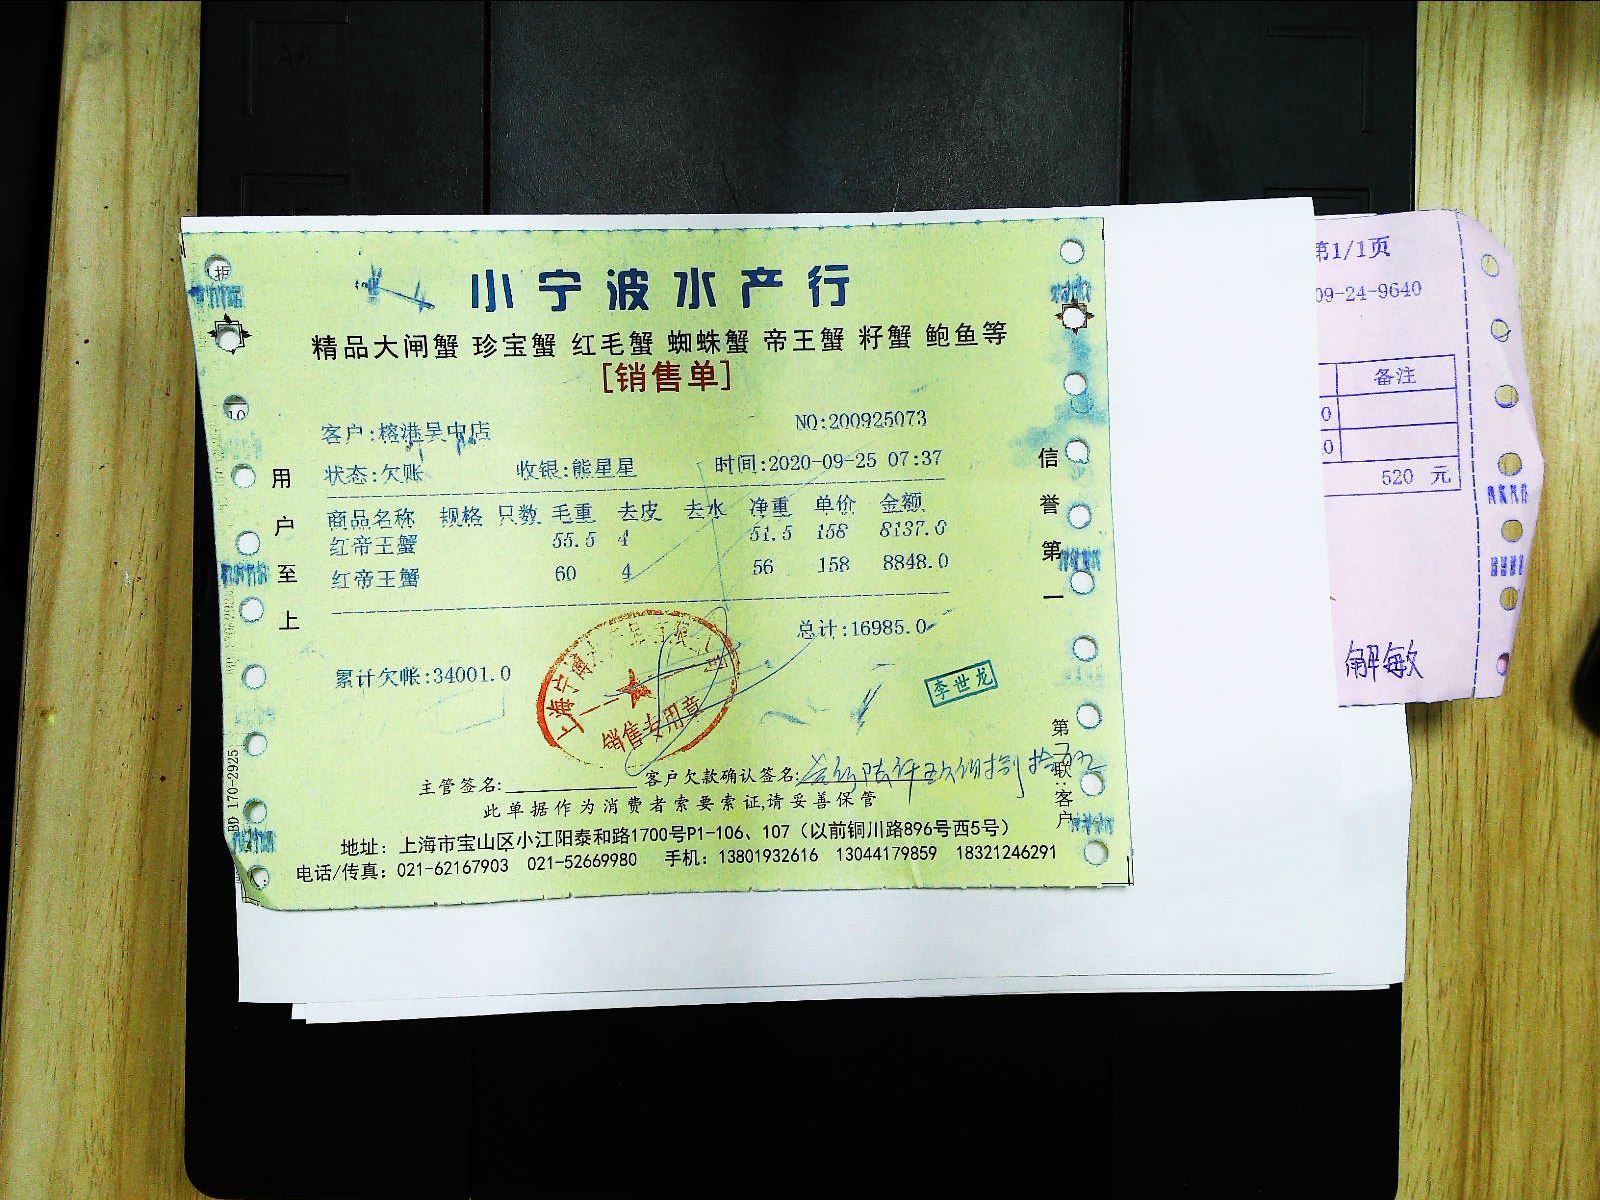 小宁波水产行
精品大闸蟹 珍宝蟹 红毛蟹 蜘蛛蟹 帝王蟹 籽蟹 鲍鱼等
[销售单]
客户:榕港吴中店 NO:200925073
状态:欠账 收银:熊星星 时间:2020-09-25 07:37
商品名称 规格 只数 毛重 去皮 去水 净重 单价 金额
红帝王蟹 55.5 4 51.5 158 8137.0
红帝王蟹 60 4 56 158 8848.0
总计:16985.0
累计欠帐:34001.0
销售专用章
李世龙
主管签名: 客户欠款确认签名:
此单据作为消费者索要索证,请妥善保管
地址：上海市宝山区小江阳泰和路1700号P1-106、107（以前铜川路896号西5号）
电话/传真：021-62167903 021-52669980 手机：13801932616 13044179859 18321246291
用户至上
信誉第一
第二联:客户
BD 170-2925
第1/1页
09-24-9640
备注
0
0
520 元
解敏